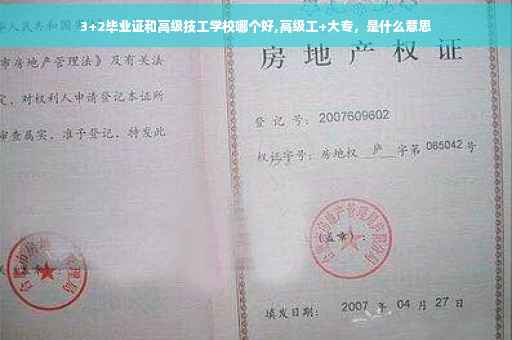 3+2毕业证和高级技工学校哪个好,高级工+大专，是什么意思
人民共和国
市房地产管理法》及有关法
定，对权利人申请登记本证所
审查属实，准予登记，特发此
房地产权证
登记号：2007609602
权证字号：房地权 庐 字第 065042 号
(盖章)：
填发日期：2007 年 04 月 27 日